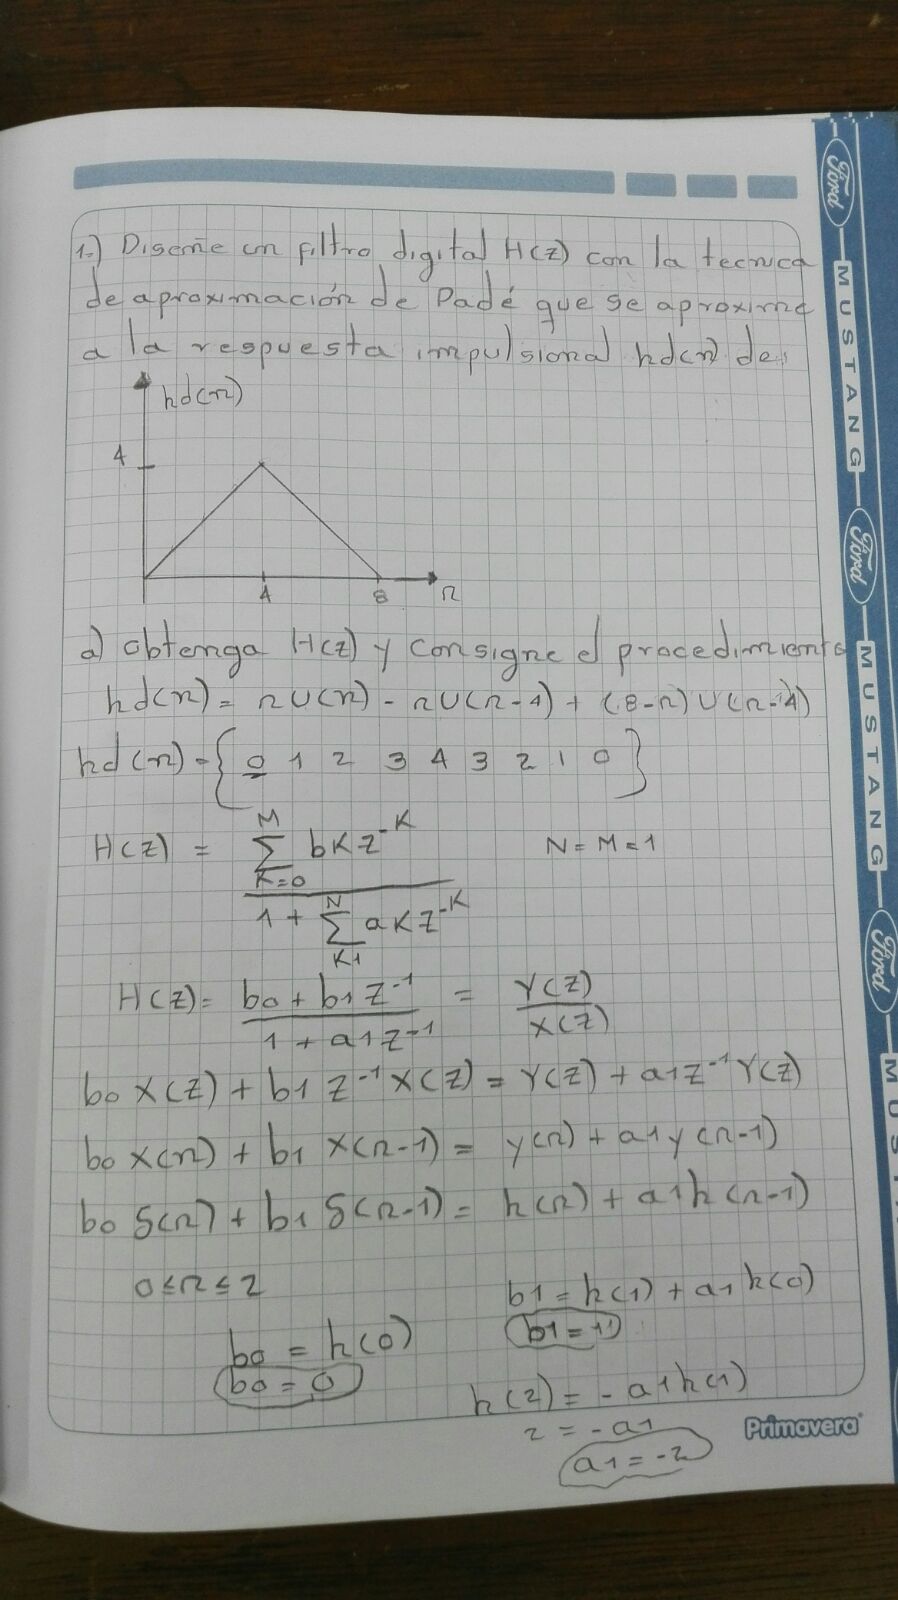 1.) Diseñe un filtro digital H(z) con la tecnica
de aproximación de Padé que se aproxime
a la respuesta impulsional hd(n) de:
hd(n)
4
4 8 n
a) obtenga H(z) y consigne el procedimiento
hd(n) = nU(n) - nU(n-4) + (8-n)U(n-4)
hd(n) = { 0 1 2 3 4 3 2 1 0 }
H(z) = \frac{\sum_{K=0}^{M} bK z^{-K}}{1 + \sum_{K1}^{N} aK z^{-K}} N = M = 1
H(z) = \frac{b0 + b1 z^{-1}}{1 + a1 z^{-1}} = \frac{Y(z)}{X(z)}
b0 X(z) + b1 z^{-1} X(z) = Y(z) + a1 z^{-1} Y(z)
b0 x(n) + b1 x(n-1) = y(n) + a1 y(n-1)
b0 δ(n) + b1 δ(n-1) = h(n) + a1 h(n-1)
0 ≤ n ≤ 2
b0 = h(0)
b0 = 0
b1 = h(1) + a1 h(0)
h(2) = -a1 h(1)
2 = -a1
a1 = -2
Primavera
Ford
MUSTANG
Ford
MUSTANG
Ford
MUST